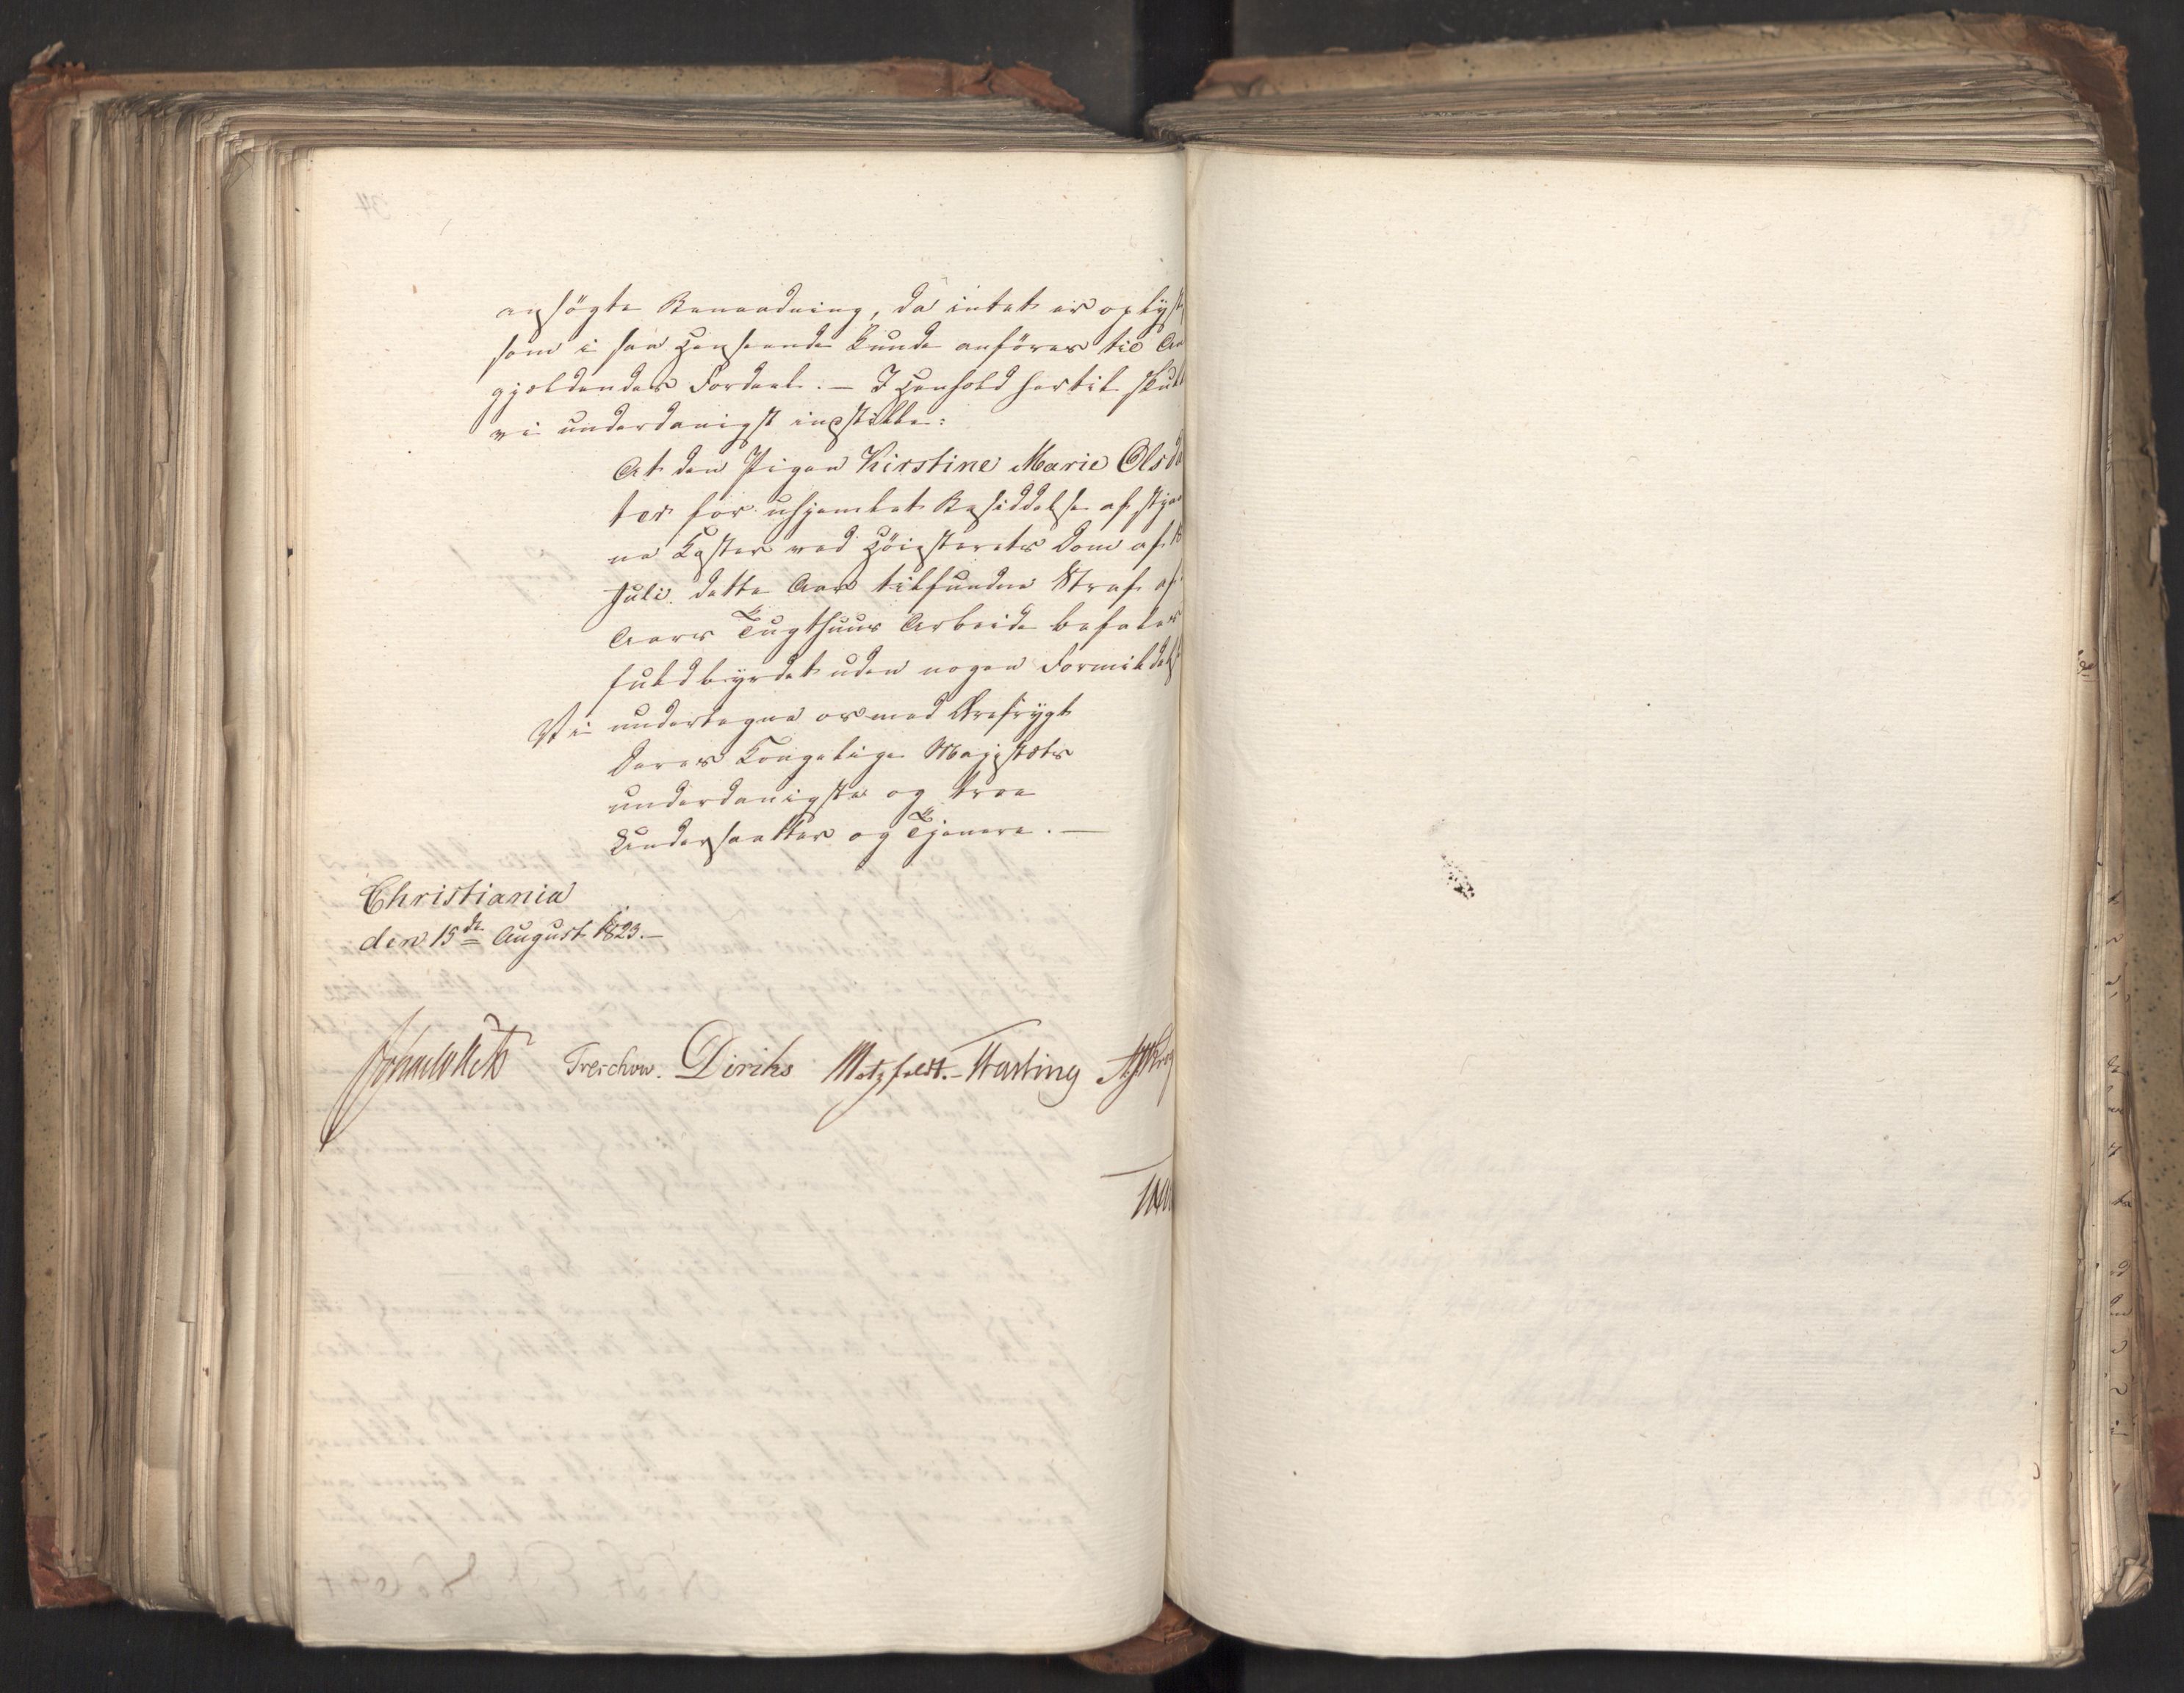 ansögte Benaadning, da intet er oplyst
som i saa Henseende kunde anföres til
gjeldendes Fordeel. — I Henhold hertil skulle
vi underdanigst indstille:
At den Pigen Kirstine Marie Olsdat
ter for uhjemlet Besiddelse af stjaal
ne Koster ved Höiesterets Dom af
Juli dette Aar tilfundne Straf af
Aars Tugthuus Arbeide befales
fuldbyrdet uden nogen Formildelse
Vi undertegne os med Ærefrygt
Deres Kongelige Majestæts
underdanigste og troe
Undersaatter og Tjenere. —
Christiania
den 15de August 1823. —
Treschow. Diriks Motzfeldt. — Hasting